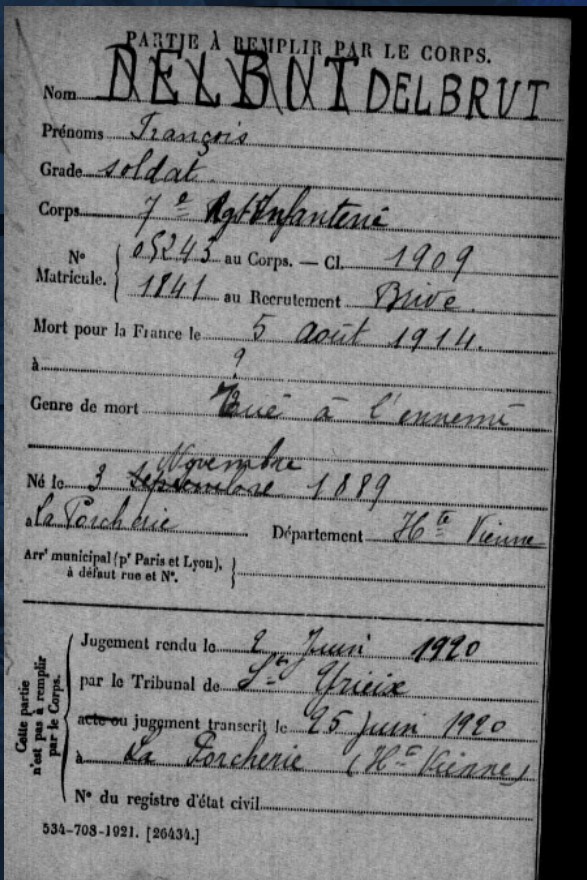 PARTIE À REMPLIR PAR LE CORPS.
Nom DELBUT DELBRUT
Prénoms François
Grade soldat
Corps 7e Rgt Infanterie
N° Matricule. 05243 au Corps. — Cl. 1909
1841 au Recrutement Brive.
Mort pour la France le 5 août 1914.
à ?
Genre de mort Tué à l'ennemi
Novembre
Né le 3 septembre 1889
à la Porcherie Département Hte Vienne
Arrt municipal (pr Paris et Lyon), à défaut rue et N°.
Cette partie n'est pas à remplir par le Corps.
Jugement rendu le 2 Juin 1920
par le Tribunal de St Yrieix
acte ou jugement transcrit le 25 juin 1920
à La Porcherie (Hte Vienne)
N° du registre d'état civil
534-708-1921. [26434.]